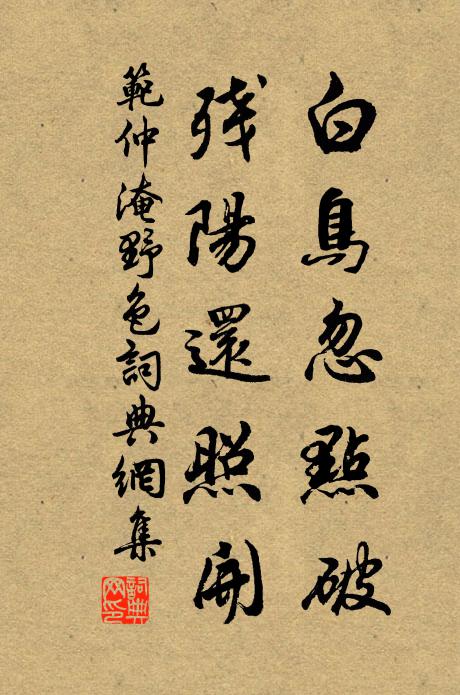 白鳥忽點破
殘陽還照開
範仲淹野色詞典網集
詞典网印